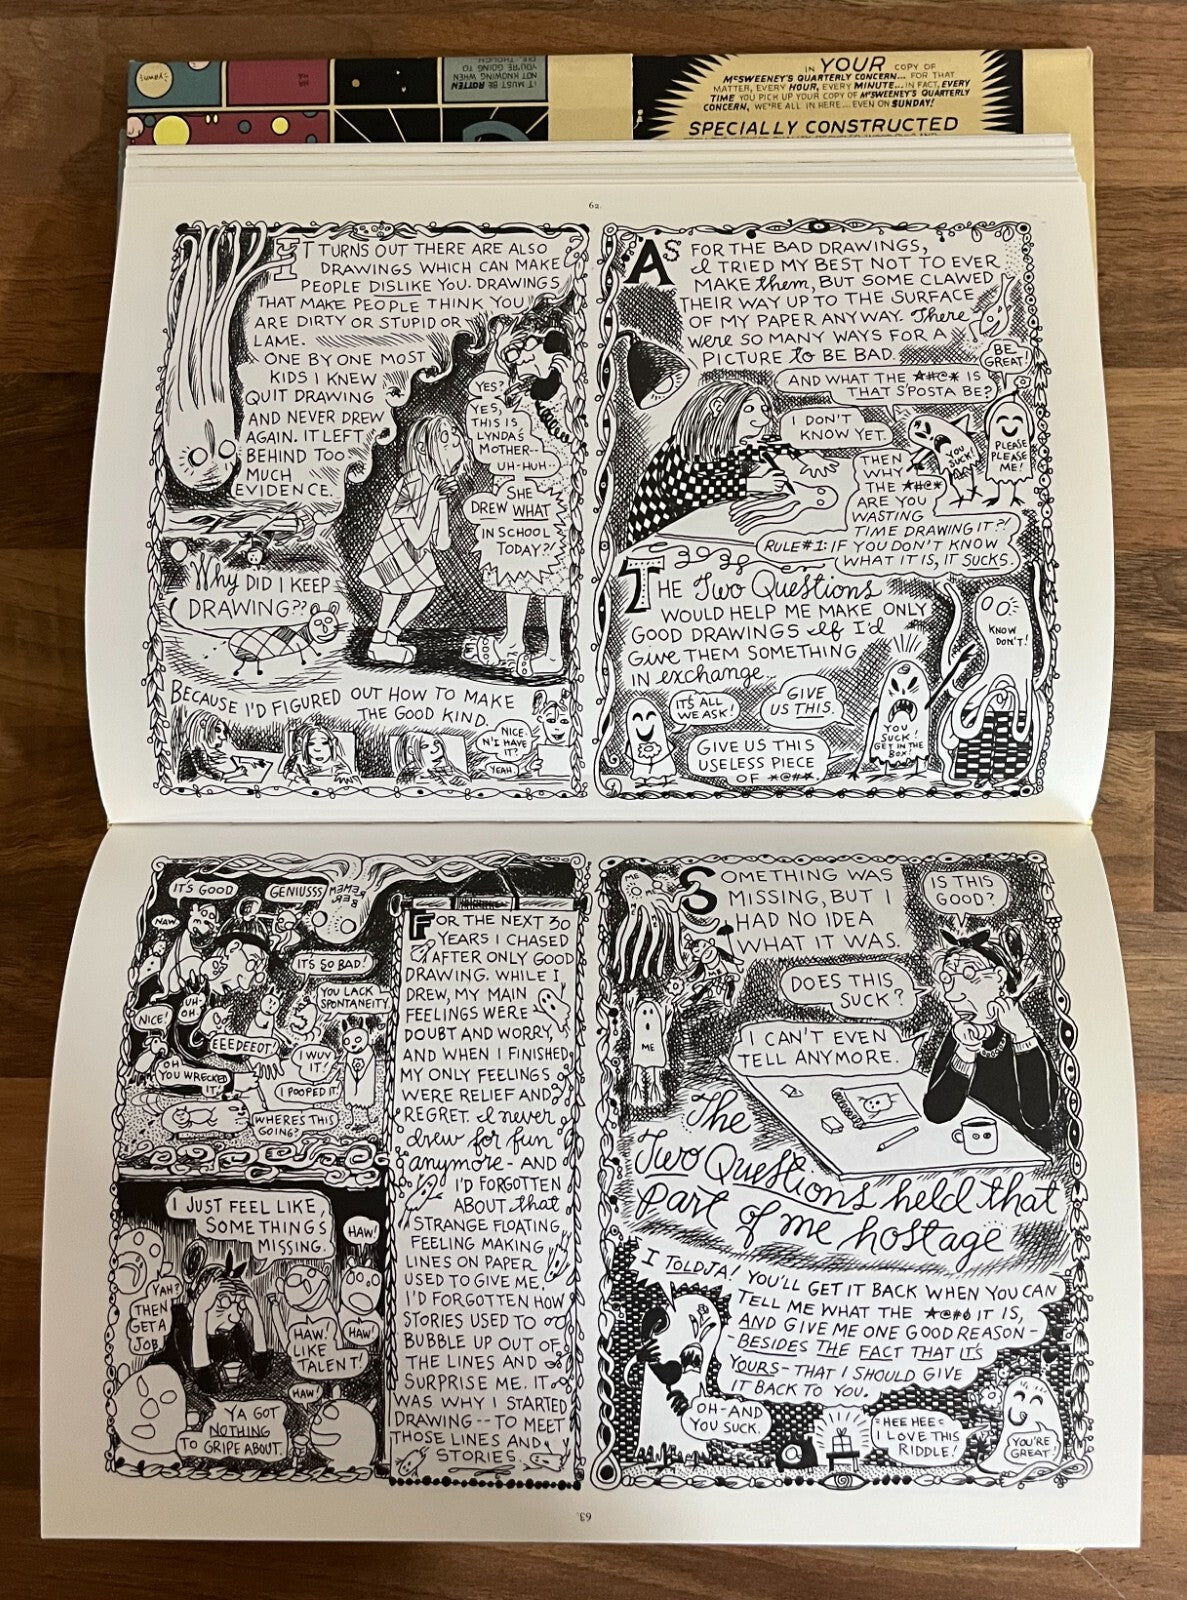 IT MUST BE ROTTEN
NOT KNOWING WHEN
YOU'RE GOING TO
DIE, THOUGH
IN YOUR COPY OF
McSWEENEY'S QUARTERLY CONCERN... FOR THAT
MATTER, EVERY HOUR, EVERY MINUTE... IN FACT, EVERY
TIME YOU PICK UP YOUR COPY OF McSWEENEY'S QUARTERLY
CONCERN, WE'RE ALL IN HERE... EVEN ON SUNDAY!
SPECIALLY CONSTRUCTED
62.
IT TURNS OUT THERE ARE ALSO
DRAWINGS WHICH CAN MAKE
PEOPLE DISLIKE YOU. DRAWINGS
THAT MAKE PEOPLE THINK YOU
ARE DIRTY OR STUPID OR
LAME.
ONE BY ONE MOST
KIDS I KNEW
QUIT DRAWING
AND NEVER DREW
AGAIN. IT LEFT
BEHIND TOO
MUCH
EVIDENCE.
YES?
YES,
THIS IS
LYNDA'S
MOTHER--
UH-HUH--
SHE
DREW WHAT
IN SCHOOL
TODAY?!
Why DID I KEEP
DRAWING??
BECAUSE I'D FIGURED OUT HOW TO MAKE
THE GOOD KIND.
NICE.
N'I HAVE
IT?
YEAH.
AS FOR THE BAD DRAWINGS,
I TRIED MY BEST NOT TO EVER
MAKE them, BUT SOME CLAWED
THEIR WAY UP TO THE SURFACE
OF MY PAPER ANYWAY. There
were SO MANY WAYS FOR A
PICTURE to BE BAD.
BE
GREAT!
AND WHAT THE *#@* IS
THAT S'POSTA BE?
I DON'T
KNOW YET.
YOU
SUCK!
PLEASE
PLEASE
ME!
THEN
WHY
THE *#@*
ARE YOU
WASTING
TIME DRAWING IT?!
RULE #1: IF YOU DON'T KNOW
WHAT IT IS, IT SUCKS.
THE Two Questions
WOULD HELP ME MAKE ONLY
GOOD DRAWINGS If I'd
GIVE THEM SOMETHING
IN exchange..
KNOW
DON'T!
IT'S ALL
WE ASK!
GIVE
US THIS.
GIVE US THIS
USELESS PIECE
OF *@#*.
YOU
SUCK!
GET IN THE
BOX!
IT'S GOOD
GENIUSSS
REMEMBER
NAW
IT'S SO BAD!
YOU LACK
SPONTANEITY
UH-
OH
NICE!
EEEDEEOT!
I WUV
IT!
OH
YOU WRECKED
IT!
I POOPED IT
WHERES THIS
GOING?
I JUST FEEL LIKE,
SOMETHINGS
MISSING.
HAW!
YAH?
THEN
GET A
JOB
HAW!
LIKE
TALENT!
HAW!
HAW!
YA GOT
NOTHING
TO GRIPE ABOUT.
FOR THE NEXT 30
YEARS I CHASED
AFTER ONLY GOOD
DRAWING. WHILE I
DREW, MY MAIN
FEELINGS WERE
DOUBT AND WORRY,
AND WHEN I FINISHED
MY ONLY FEELINGS
WERE RELIEF AND
REGRET. I never
drew for fun
anymore- AND
I'D FORGOTTEN
ABOUT that
STRANGE FLOATING
FEELING MAKING
LINES ON PAPER
USED TO GIVE ME.
I'D FORGOTTEN HOW
STORIES USED TO
BUBBLE UP OUT OF
THE LINES AND
SURPRISE ME. IT
WAS WHY I STARTED
DRAWING -- TO MEET
THOSE LINES AND
STORIES.
ME
SOMETHING WAS
MISSING, BUT I
HAD NO IDEA
WHAT IT WAS.
IS THIS
GOOD?
DOES THIS
SUCK?
ME
I CAN'T EVEN
TELL ANYMORE.
The
Two Questions held that
part of me hostage
I TOLDJA! YOU'LL GET IT BACK WHEN YOU CAN
TELL ME WHAT THE *@#¢ IT IS,
AND GIVE ME ONE GOOD REASON-
-BESIDES THE FACT THAT IT'S
YOURS- THAT I SHOULD GIVE
IT BACK TO YOU.
OH-AND
YOU SUCK.
=HEE HEE=
I LOVE THIS
RIDDLE!
YOU'RE
GREAT!
63.